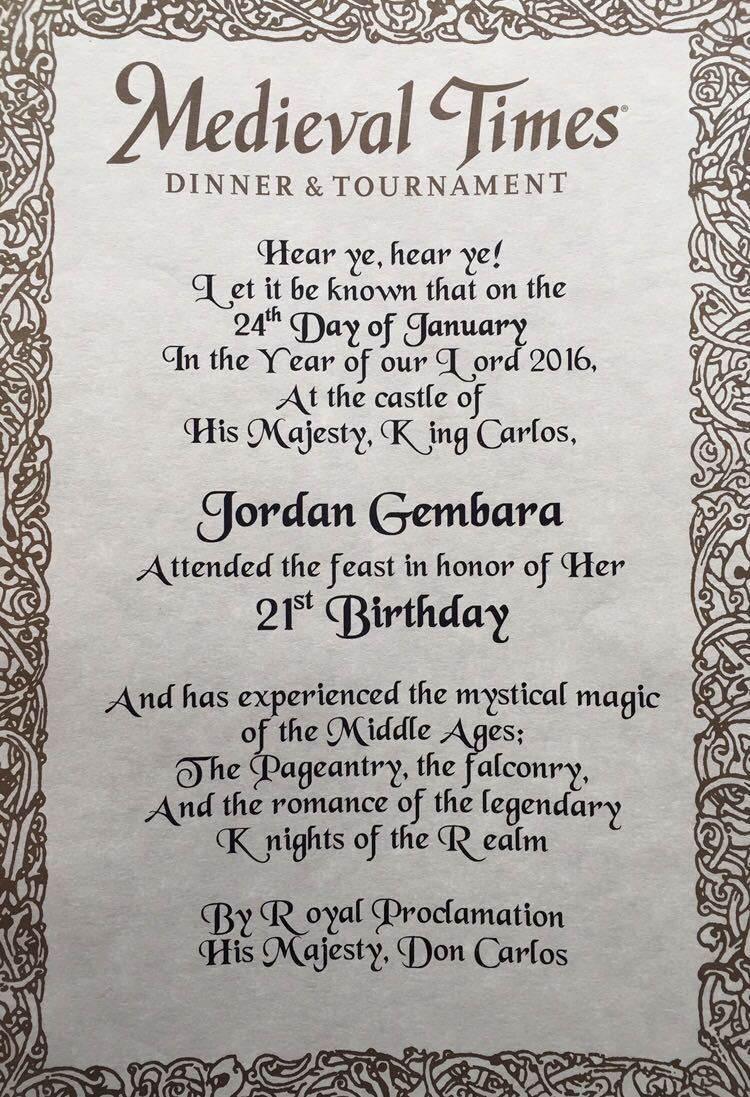 Medieval Times®
DINNER & TOURNAMENT
Hear ye, hear ye!
Let it be known that on the
24th Day of January
In the Year of our Lord 2016,
At the castle of
His Majesty, King Carlos,
Jordan Gembara
Attended the feast in honor of Her
21st Birthday
And has experienced the mystical magic
of the Middle Ages;
The Pageantry, the falconry,
And the romance of the legendary
Knights of the Realm
By Royal Proclamation
His Majesty, Don Carlos